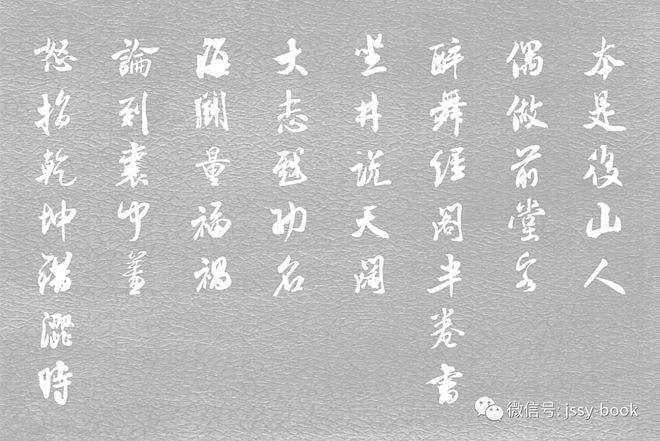 本是後山人
偶做前堂客
醉舞經閣半卷書
坐井說天闊
大志戲功名
海鬭量福禍
論到囊中羞
怒指乾坤錯澀時
微信号: jssy-book